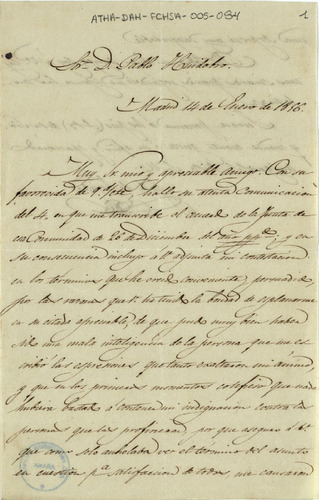 ATHA-DAH-FCHSA-005-084
1
Sr. D. Pablo Huidobro.
Madrid 14 de Enero de 1856.
Muy Sr mio y apreciable amigo: Con su
favorecida de 9. del hallo su atenta Comunicacion
del 4. en que me transcribe el acuerdo de la Junta de
esa Comunidad de 20 de Diciembre del año ppdo, y en
su consecuencia incluyo a V. adjunta mi contestacion
en los terminos que he creido conveniente, persuadido
por las razones que V. ha tenido la bondad de esplanarme
en su citada apreciable, de que pudo muy bien haber
sido una mala inteligencia de la persona que me es-
cribió las espresiones que tanto exaltaron mi ánimo,
y que en los primeros momentos
hubiera bastado á contener mi indignacion contra la
persona que las profirió, por que aseguro á V.
que como solo anhelaba ver el termino del asunto
en cuestion pa. satisfaccion de todos, me causaron